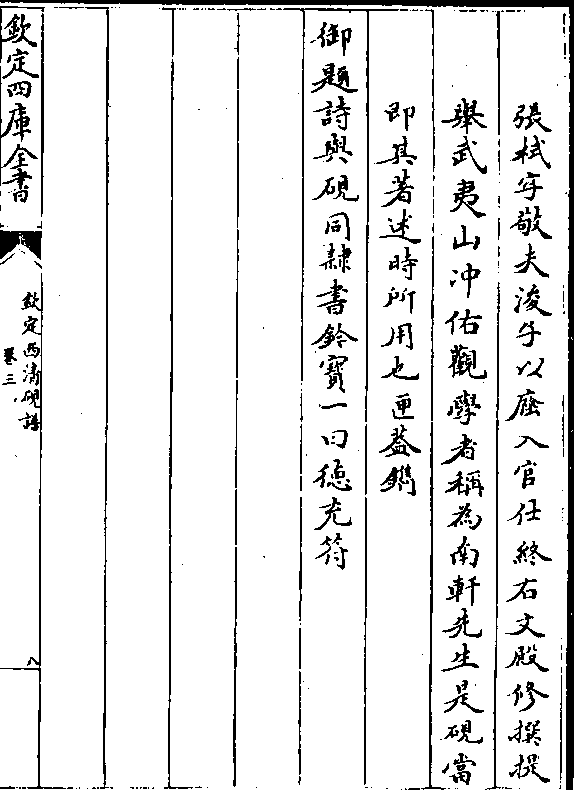 張栻字敬夫浚子以廕入官仕終右文殿修撰提
舉武夷山冲佑觀學者稱為南軒先生是硯當
即其著述時所用也匣葢鐫
御題詩與硯同隸書鈐寶一曰德充符
欽定四庫全書
欽定西清硯譜
卷三
八